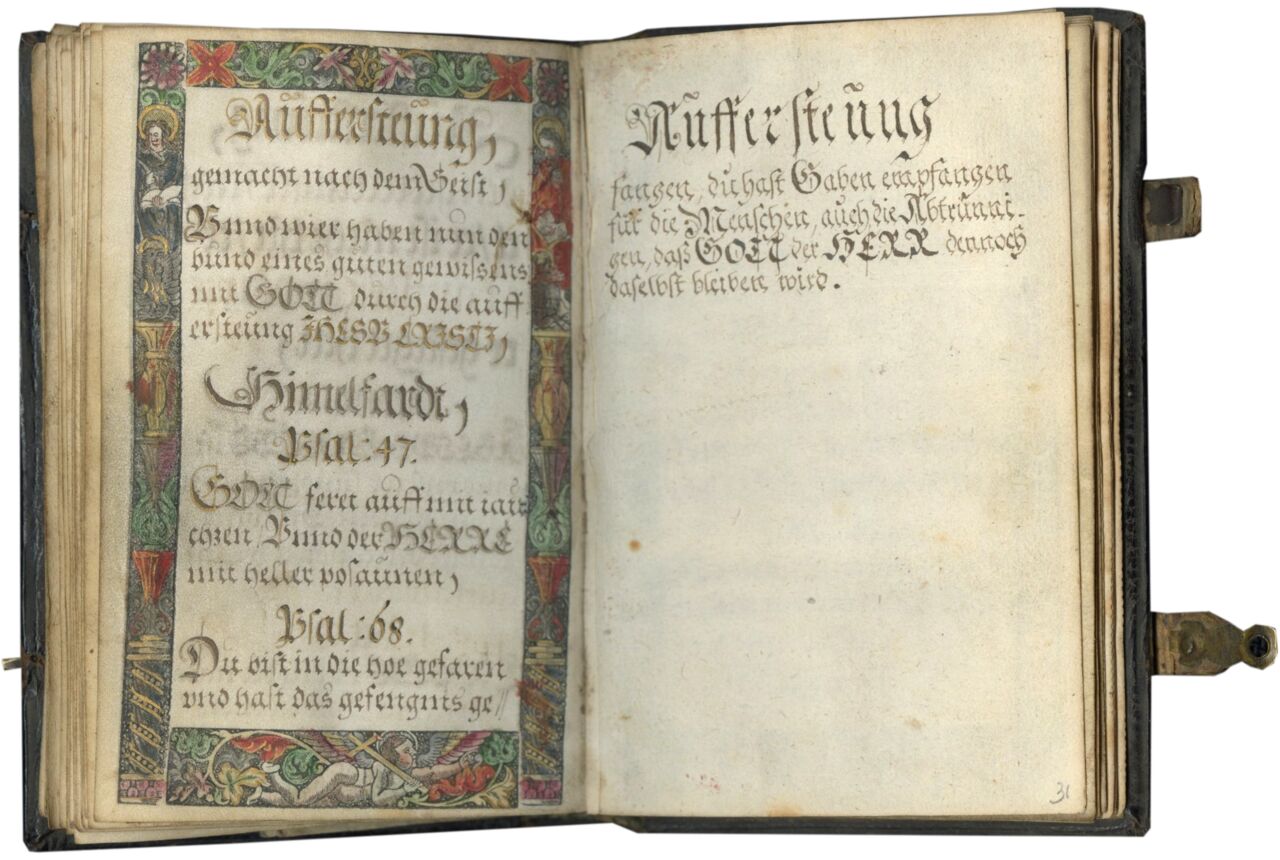 Auffersteung,
gemacht nach dem Geist,
Vnnd wier haben nun den
bund eines guten gewissens
mit GOTT durch die auff
ersteung JHESV CRISTI,
Himelfardt,
Psal: 47.
GOTT feret auff mit iau
chzen, Vnnd der HERRE
mit heller posaunen,
Psal: 68.
Du bist in die hoe gefaren
vnd hast das gefengnis ge//
Auffersteung
fangen, du hast Gaben empfangen
für die Menschen, auch die Abtrünni-
gen, daß GOTT der HERR dennoch
daselbst bleiben wird.
31